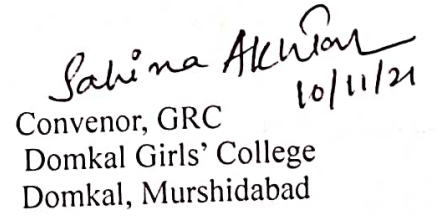 Sahina Akhtar
10/11/21
Convenor, GRC
Domkal Girls' College
Domkal, Murshidabad